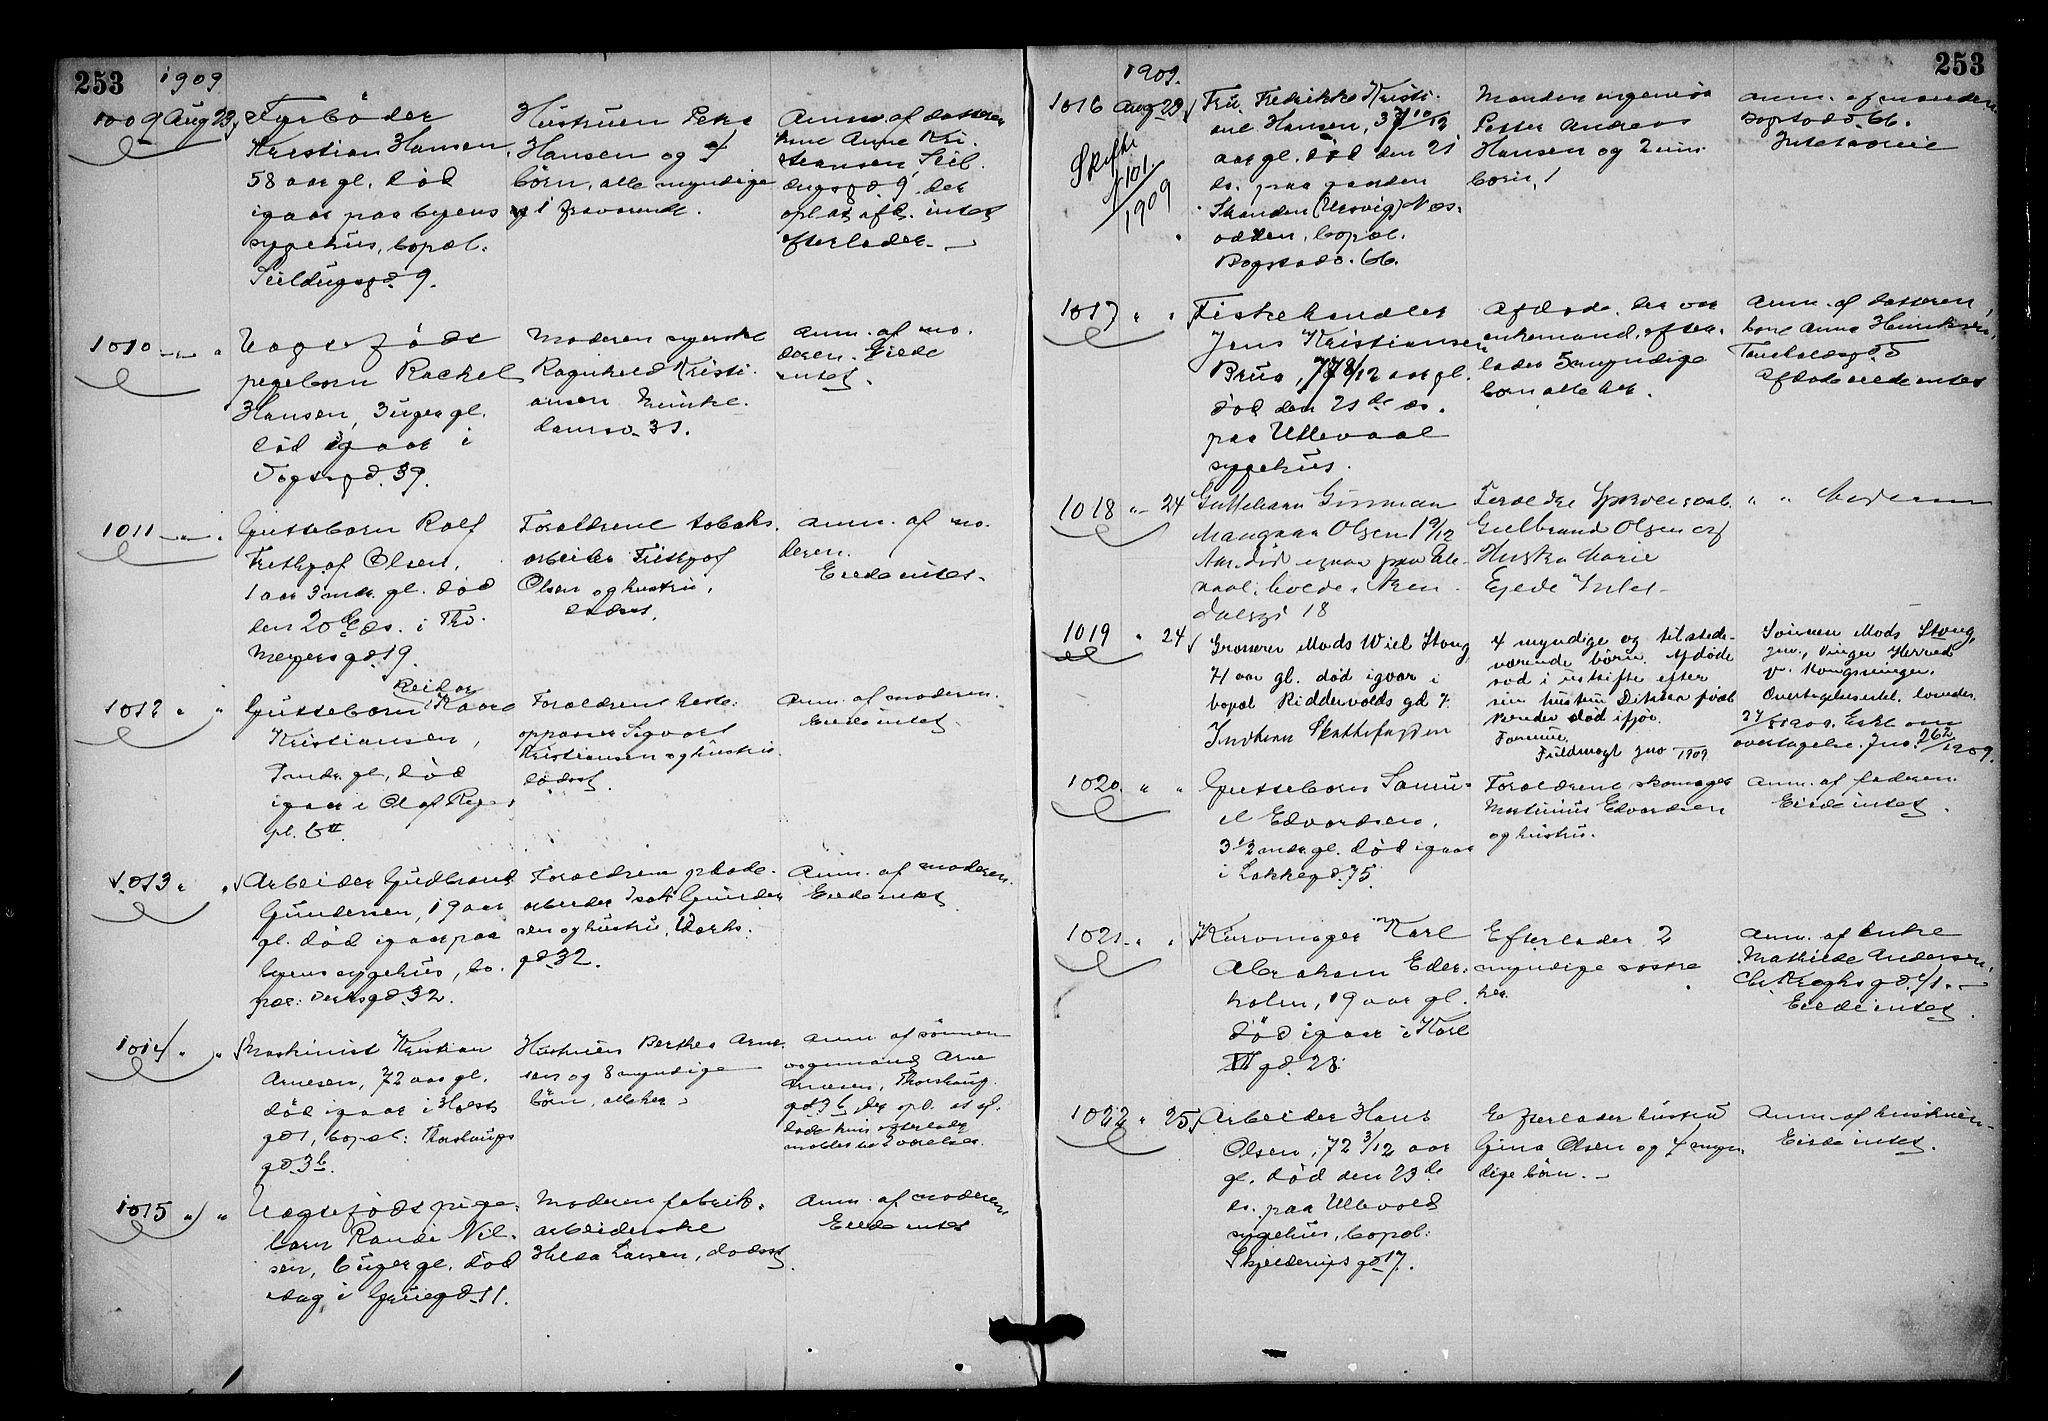 253
1909
1009 Aug 23
Fyrbøder
Kristian Hansen,
58 aar gl. død
igaar paa byens
sygehus, bopæl:
Seildugsgd. 9.
Hustruen Petra
Hansen og
børn, alle myndige
fraværende.
Anm. af datteren
Anna Kri-
stiansen, Seil-
dugsgd 9, der
opl. at afd. intet
efterlader.
1010
Uægtefødt
pigebarn Rachel
Hansen, 3 uger gl.
død igaar i
Vogtsgd. 39.
Moderen syerske
Ragnhild Kristi-
ansen Munke-
damsv. 31.
Anm. af mo-
deren. Eiede
intet.
1011
Guttebarn Rolf
Frithjof Olsen,
1 aar 3 mdr. gl. død
den 20de ds. i Th.
Meyers gd. 19.
Forældrene tobaks-
arbeider Frithjof
Olsen og hustru,
dødsst.
Anm. af mo-
deren.
Eiede intet.
1012
Reidar
Guttebarn Kaare
Kristiansen,
mdr. gl., død
igaar i Olaf Ryes
pl. 6 II
Forældrene heste-
opasser Sigvart
Kristiansen og hustru,
dødsst.
Anm. af moderen.
Eiede intet.
1013
Arbeider Gudbrand
Gundersen, 19 aar
gl. død igaar paa
byens sygehus, bo-
pæl: Verksgd. 32.
Forældrene
arbeider Isak Gunder-
sen og hustru, Verks-
gd. 32.
Anm. af moderen.
Eiede intet.
1014
Maskinist Kristian
Arnesen, 72 aar gl.
død igaar i Holsts
gd 1, bopæl: Thorshaugs
gd. 3 b.
Hustruen Berthea Arne-
sen og 8 myndige
børn, alle her.
Anm. af sønnen
vognmand Arne
Arnesen, Thorshaug-
gd 3 b, der opl. at af-
døde kun efterlader
møbler til 2 værelser.
1015
Uægtefødt pige-
barn Randi Nil-
sen, 6 uger gl. død
idag i Grüegd. 11.
Moderen fabrik-
arbeiderske
Hilda Larsen, dødsst.
Anm. af moderen
Eiede intet
253
1909.
1016 Aug 23
Skifte
101
1909
Fru Fredrikke Kristi-
ane Hansen, 37 10/12
aar gl. død den 21
ds. paa gaarden
Stranden (Ursvig) Næs-
odden, bopæl.
Bogstadv. 66.
Manden ingeniør
Petter Andreas
Hansen og 2 um.
børn.
Anm. af manden
Bogstadv. 66.
1017
Fiskehandler
Jens Kristiansen
Brua, 77 8/12 aar gl.
død den 21de ds.
paa Ullevaal
sygehus.
Afdøde, der var
enkemand, efter-
lader 5 myndige
børn alle her.
Anm. af datteren,
Anna Henriksen,
5
Afdøde eiede intet
1018 24
Guttebarn Gunnar
Olsen 1 9/12
Aar. død igaar paa Ulle-
vaal. boede Aken-
dalsgt 18
Forældre
Gulbrand Olsen og
Hustru Marie
Eiede Intet.
" " Moderen
1019 " 24
Grosserer Mads Wiel Stang
71 aar gl. død igaar i
bopæl Riddervolds gd 7.
4 myndige og tilstede-
værende børn. Afdøde
sad i uskifte efter
sin hustru Ditlekka født
død ifjor.
Formue.
Fuldmagt jno 1909
Sønnen Mads Stang
jnr., Vinger Herred
pr. Kongsvinger.
Overtagelseserkl. lovedes.
27/8 1909. Erkl. om
overtagelse. Jno. 262/1909.
1020.
Guttebarn Samu-
el Edvardsen,
3 1/2 mdr gl. død igaar
i Lakkegd. 75.
Forældrene skomager
Martinius Edvardsen
og hustru.
Anm. af faderen
Eiede intet.
1021
Kurvmager Karl
Abraham Eder-
holm, 19 aar gl.
død igaar i Karl
XII gd. 28.
Efterlader 2
myndige søstre
her.
Anm. af enke
Mathilde Andersen,
Chr. Kroghs gd. 41.
Eiede intet.
1022 " 25
Arbeider Hans
Olsen, 72 3/12 aar
gl. død den 23de
ds. paa Ullevold
sygehus, bopæl:
Skjelderups gd 17.
Efterlader hustru
Gina Olsen og 4 myn-
dige børn.
Anm. af hustruen.
Eiede intet.